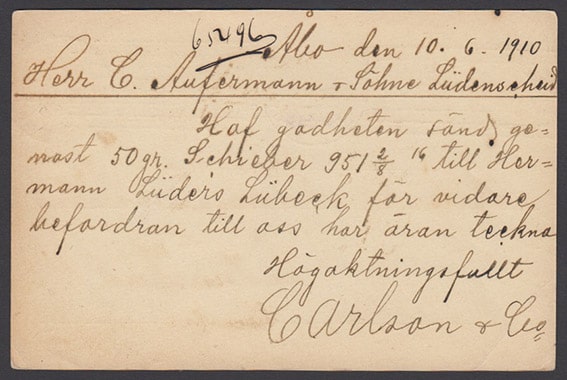 65496
Åbo den 10. 6. 1910
Herr C. Aufermann & Söhne Lüdenscheid
Haf godheten sänd ge=
nast 50 gr. Schieber 951 2/8 16 till Her=
mann Lüders Lübeck för vidare
befordran till oss har äran teckna
Högaktningsfullt
Carlson & Co